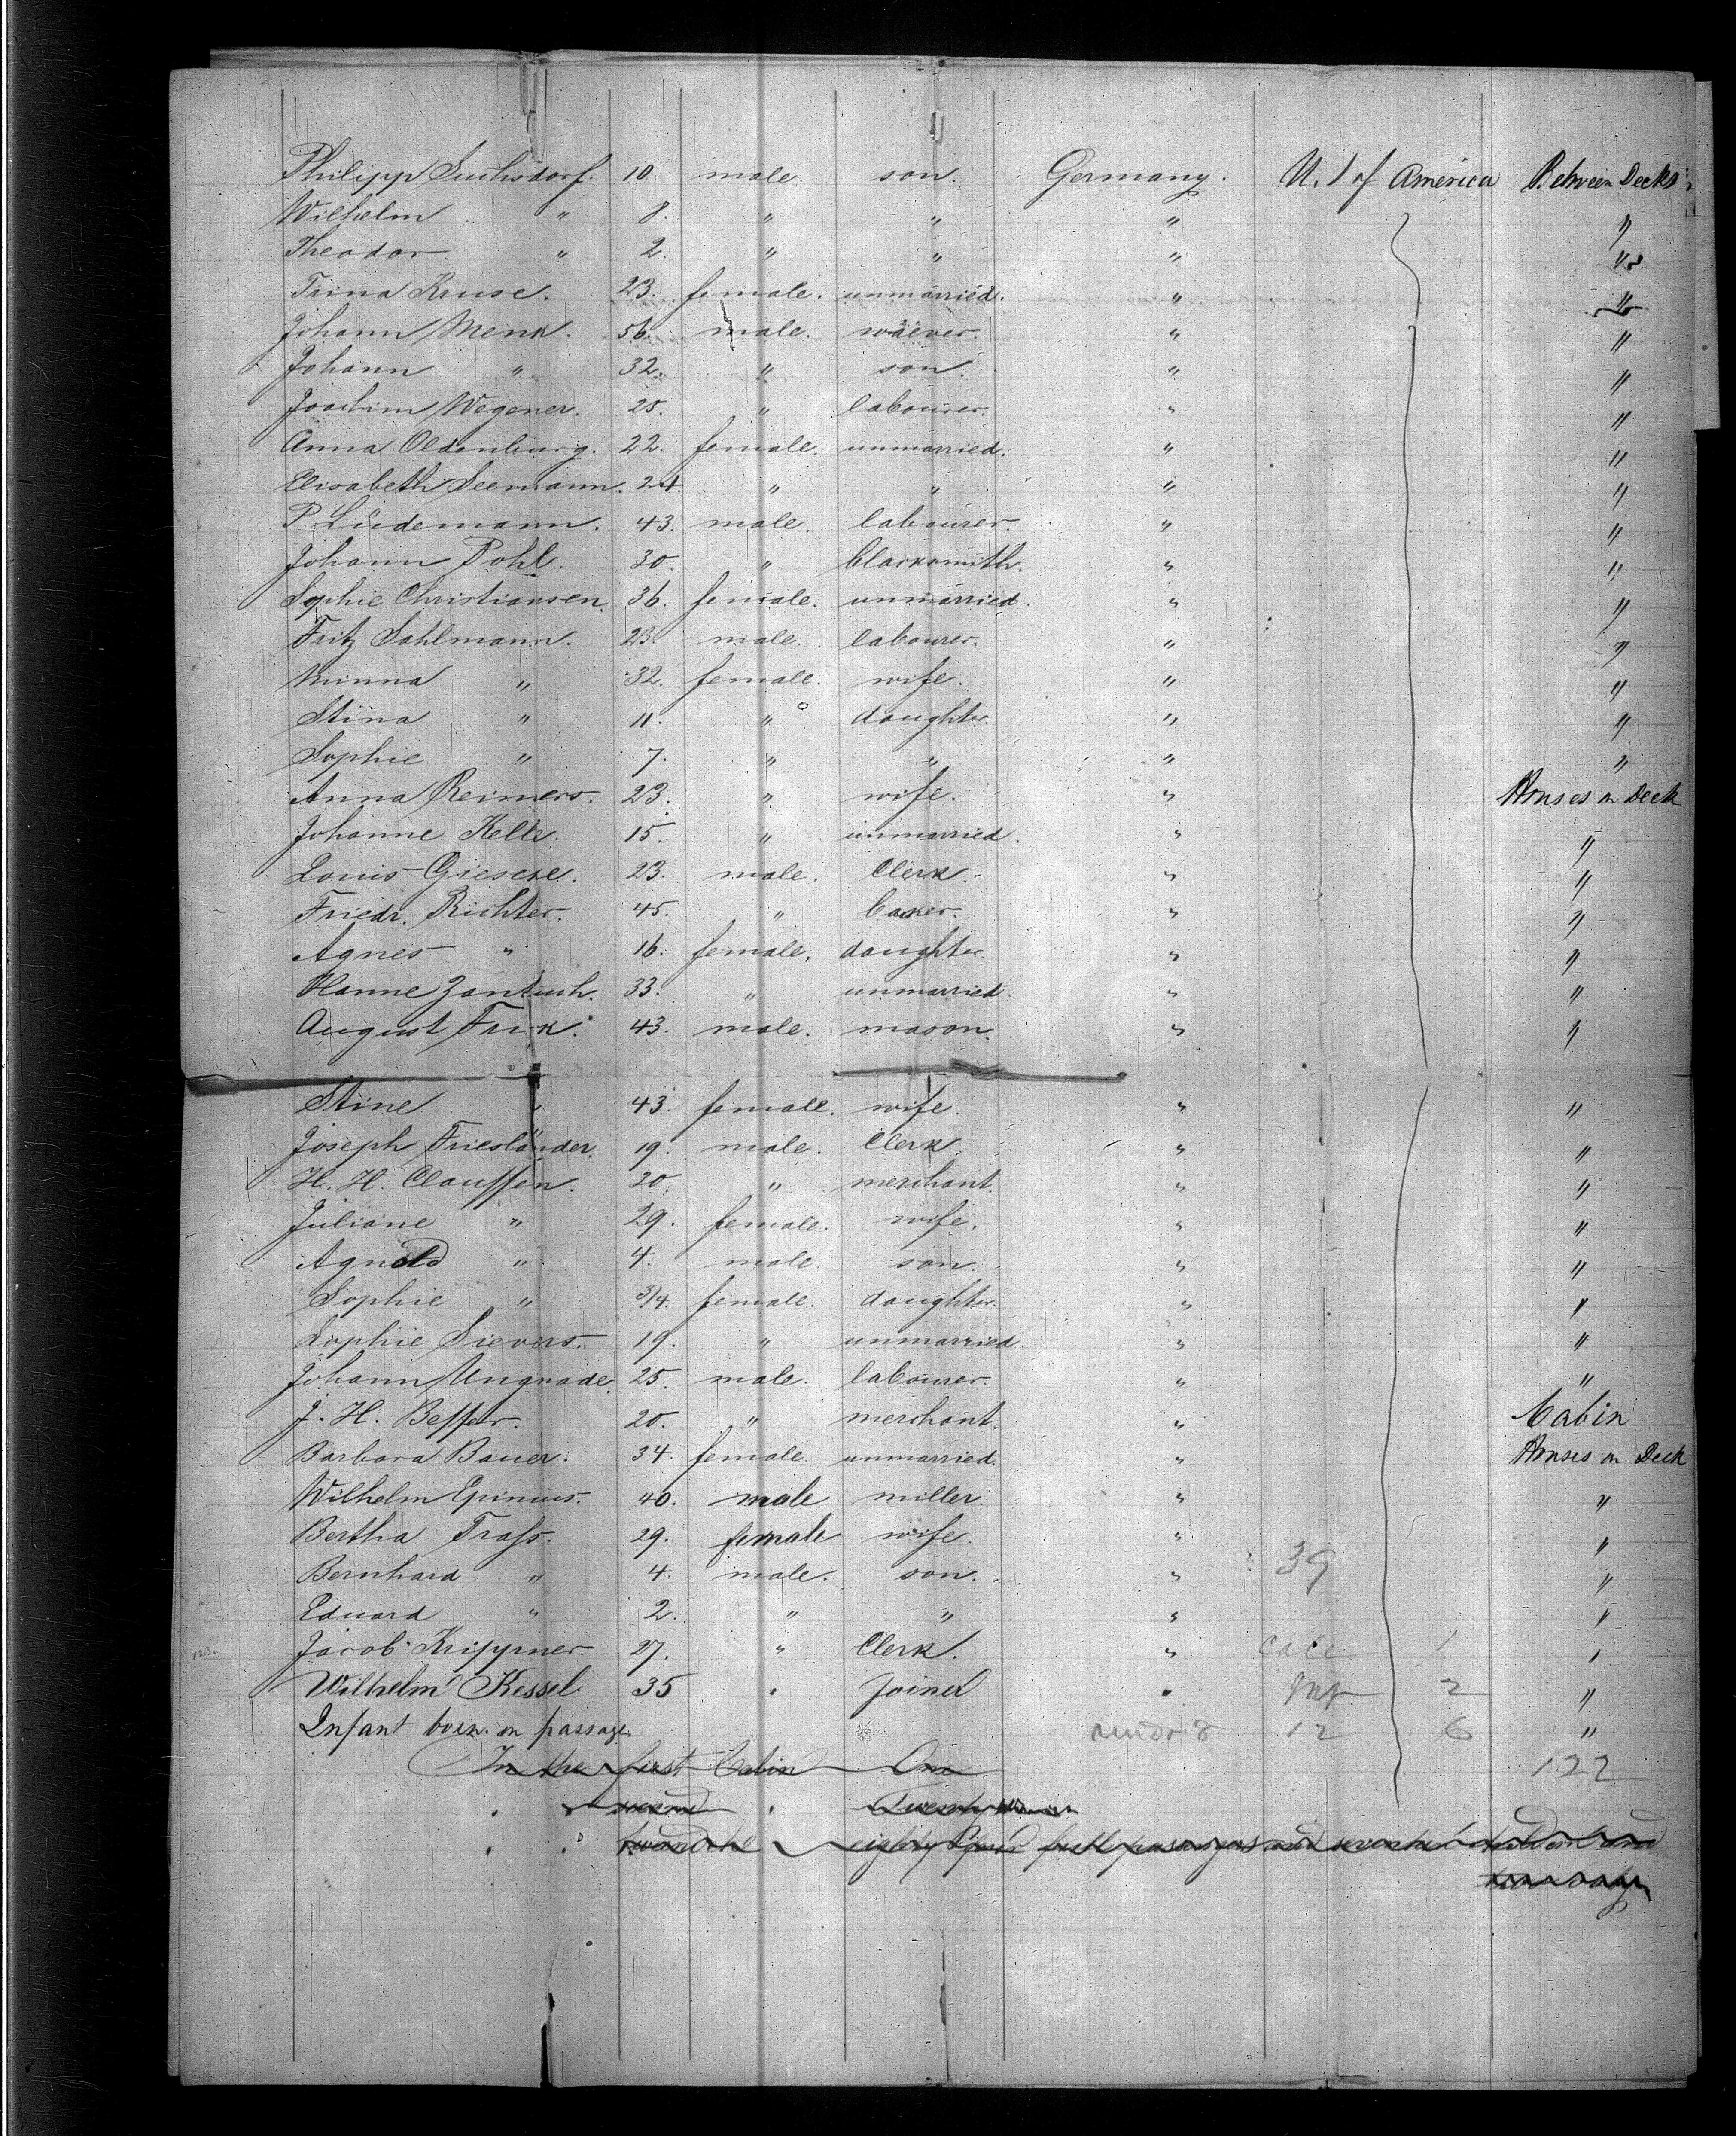 Philipp Suchsdorf. 10. male. son. Germany. U. S of America Between Decks
Wilhelm " 8. " " " "
Theodor " 2. " " " "
Trina Kruse. 23. female. unmarried. " "
Johann Menk. 56. male. waever. " "
Johann " 32. " son. " "
Joachim Wegener. 25. " labourer. " "
Anna Oldenburg. 22. female. unmarried. " "
Elisabeth Seemann. 24. " " " "
P. Lüdemann. 43. male. labourer. " "
Johann Pohl. 30. " blacksmith. " "
Sophie Christiansen. 36. female. unmarried. " "
Fritz Sahlmann. 23. male. labourer. " "
Minna " 32. female. wife. " "
Stina " 11. " daughter. " "
Sophie " 7. " " " "
Anna Reimers. 23. " wife. " Houses on Deck
Johanne Kelle. 15. " unmarried. " "
Louis Gieseke. 23. male. Clerk. " "
Friedr. Richter. 45. " baker. " "
Agnes " 16. female. daughter. " "
Hanne 33. " unmarried. " "
August 43. male. mason. " "
Stine " 43. female. wife. " "
Joseph Friesländer. 19. male. Clerk " "
H. H. Claussen. 30. " merchant. " "
Juliane " 29. female. wife. " "
Agnold " 4. male. son. " "
Sophie " 3/4. female. daughter. " "
Sophie Sievers. 19. " unmarried. " "
Johann Ungnade. 25. male. labourer. " "
J. H. Besser. 20. " merchant. " Cabin
Barbara Bauer. 34. female. unmarried. " Houses on Deck
Wilhelm Epinius. 40. male miller. " "
Bertha Trass. 29. female wife. " "
Bernhard " 4. male. son. " 39 "
Eduard " 2. " " " "
Jacob Krippner 27. " Clerk. " 1 "
Wilhelm Kessel 35 " Joiner " 2 "
Infant born on passage. under 8 12 6 "
In the first Cabin One 122
" " second " Twenty
" " eighty four full passengers and children and